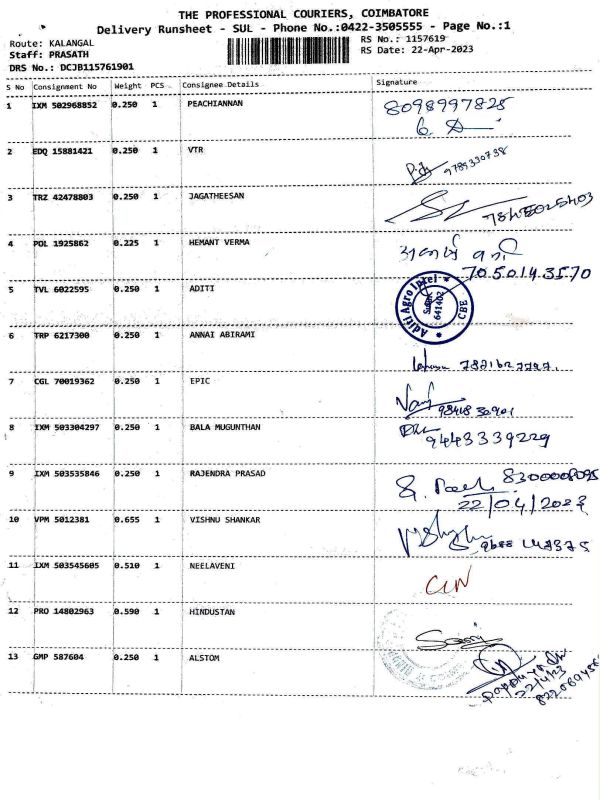 THE PROFESSIONAL COURIERS, COIMBATORE
Delivery Runsheet - SUL - Phone No.:0422-3505555 - Page No.:1
Route: KALANGAL
RS No.: 1157619
Staff: PRASATH
RS Date: 22-Apr-2023
DRS No.: DCJB115761901
S No Consignment No Weight PCS Consignee Details Signature
1 IXM 502968852 0.250 1 PEACHIANNAN 8098997825
2 EDQ 15881421 0.250 1 VTR 9789330738
3 TRZ 42478803 0.250 1 JAGATHEESAN
4 POL 1925862 0.225 1 HEMANT VERMA
7050143570
5 TVL 6022595 0.250 1 ADITI Aditi Agro Intel 641402 CBE
6 TRP 6217300 0.250 1 ANNAI ABIRAMI
7 CGL 70019362 0.250 1 EPIC
8 IXM 503304297 0.250 1 BALA MUGUNTHAN
9443339229
9 IXM 503535846 0.250 1 RAJENDRA PRASAD
22/04/2023
10 VPM 5012381 0.655 1 VISHNU SHANKAR
11 IXM 503545605 0.510 1 NEELAVENI
12 PRO 14802963 0.590 1 HINDUSTAN
13 GMP 587604 0.250 1 ALSTOM
22/4/23